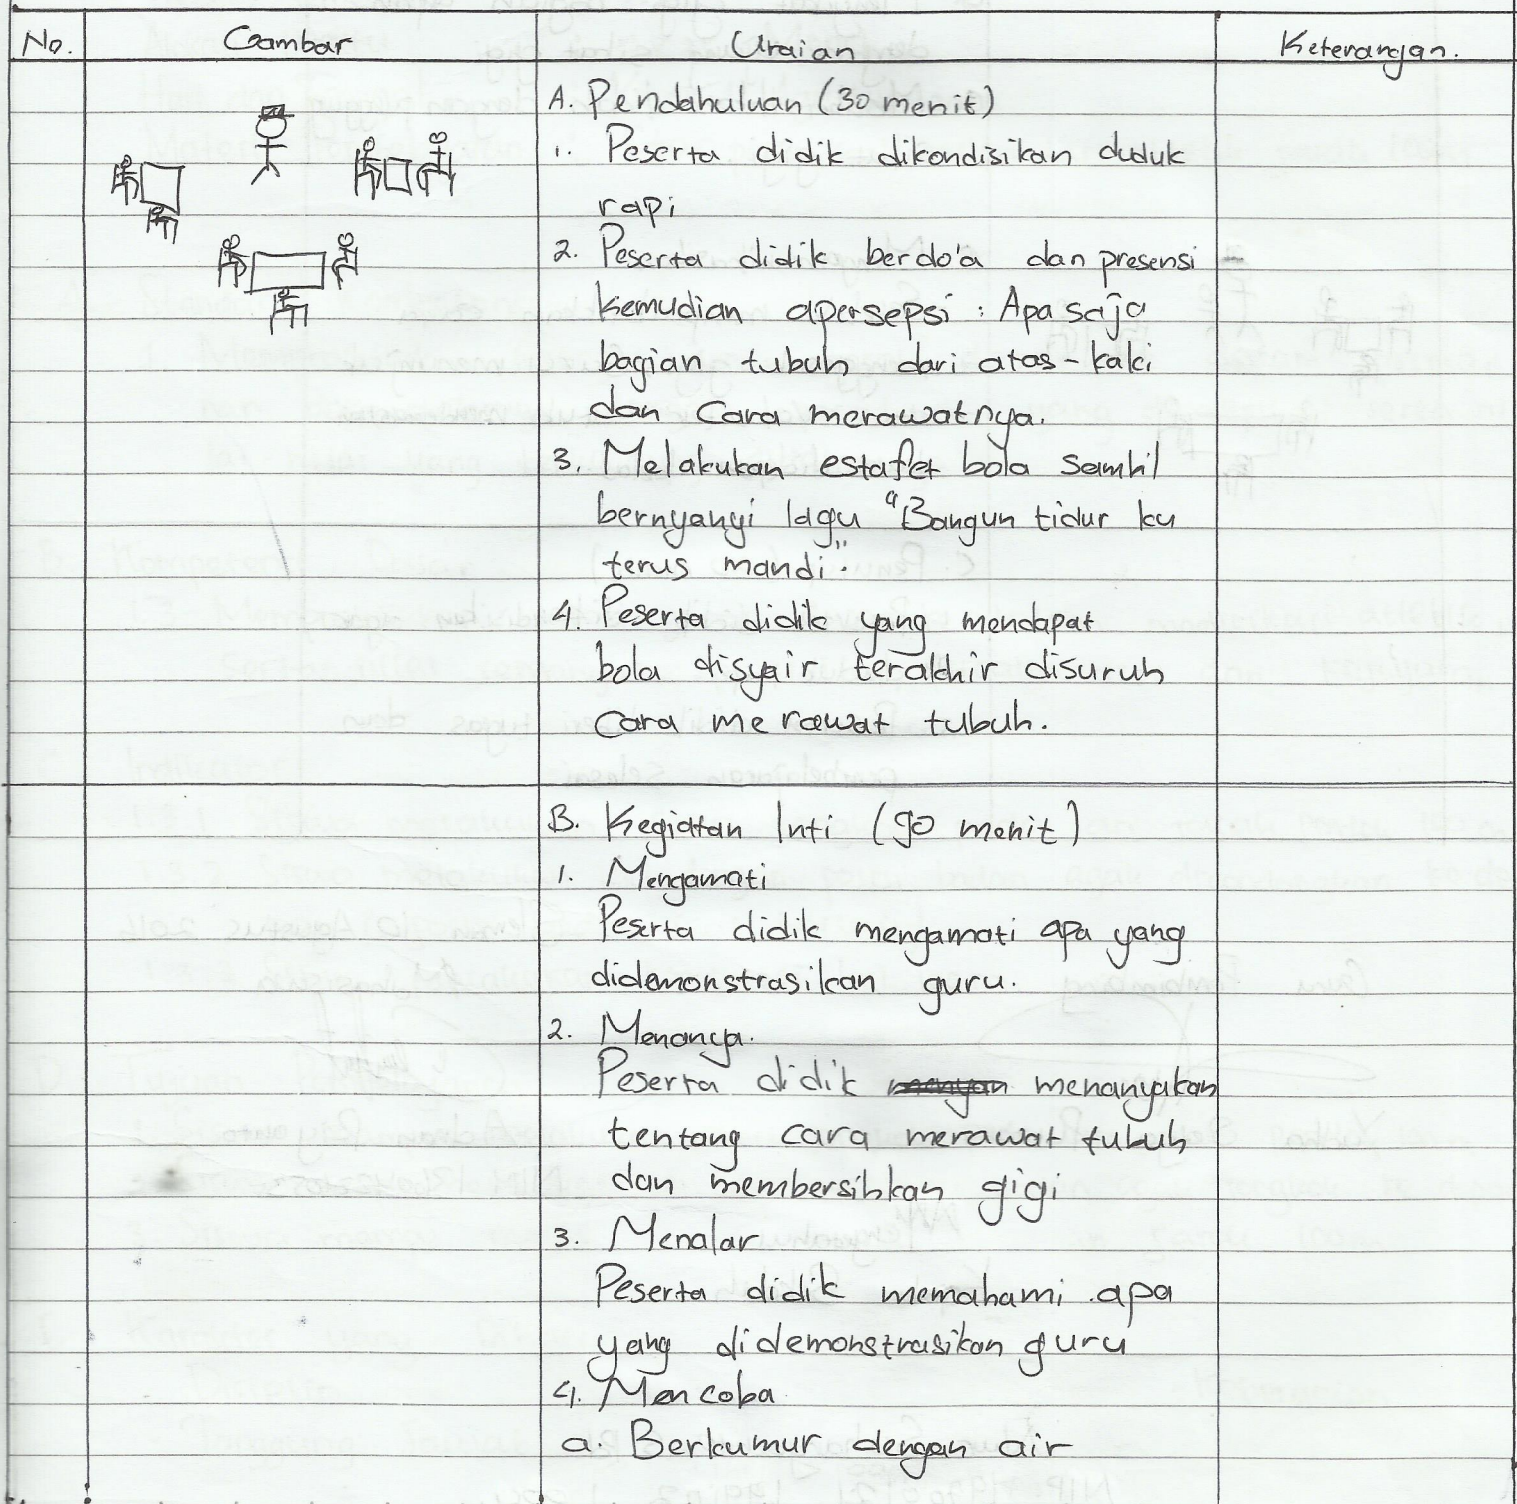 No. Gambar Uraian Keterangan.
A. Pendahuluan (30 menit)
1. Peserta didik dikondisikan duduk
rapi
2. Peserta didik berdo'a dan presensi
kemudian apersepsi : Apa saja
bagian tubuh dari atas - kaki
dan Cara merawatnya.
3. Melakukan estafet bola sambil
bernyanyi lagu "Bangun tidur ku
terus mandi".
4. Peserta didik yang mendapat
bola disyair terakhir disuruh
Cara merawat tubuh.
B. Kegiatan Inti (90 menit)
1. Mengamati
Peserta didik mengamati apa yang
didemonstrasikan guru.
2. Menanya.
Peserta didik menanyakan
tentang cara merawat tubuh
dan membersihkan gigi
3. Menalar
Peserta didik memahami apa
yang didemonstrasikan guru
4. Mencoba
a. Berkumur dengan air